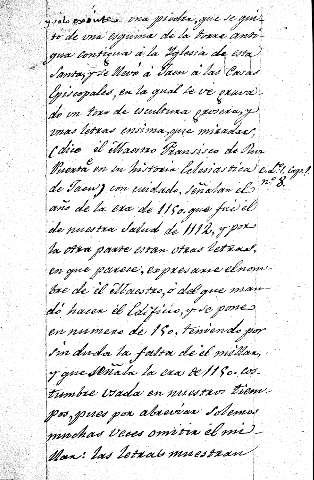 y solo existe una piedra, que se qui-
tó de una esquina de la torre anti-
gua contigua á la Yglesia de esta
Santa, y se llevó á Jaen á las Casas
Episcopales, en la qual se vé grava-
do un toro de escultura grosera, y
unas letras ensima, que miradas,
(dice el Maestro Fransisco de Rus
Puerta en su historia Eclesiastica
de Jaen) con cuidado, señalan el
año de la era de 1150. que fué el
de nuestra salud de 1112, y por
la otra parte estan otras letras,
en que parese, espresarse el nom-
bre de el Maestro, ó del que man-
dó hacer el Edificio, y se pone
en numero de 150. teniendo por
sin duda la falta de el millar,
y que señala la era de 1150. cos-
tumbre usada en nuestros tiem-
pos, pues por abreviar solemos
muchas veces omitir el mi-
llar: las letras muestran
Cap. 1.
nº 8.